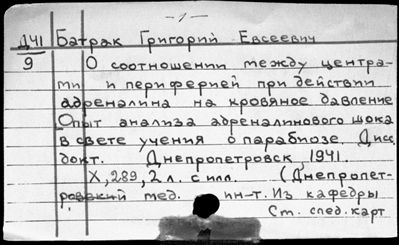 - 1 -
Д41 Батрак Григорий Евсеевич
9 О соотношении между центра-
ми и периферией при действии
адреналина на кровяное давление
Опыт анализа адреналинового шока
в свете учения о парабиозе. Дисс.
докт. Днепропетровск, 1941.
X, 289, 2 л. с илл. (Днепропет-
ровский мед. ин-т. Из кафедры
Ст. спед. карт